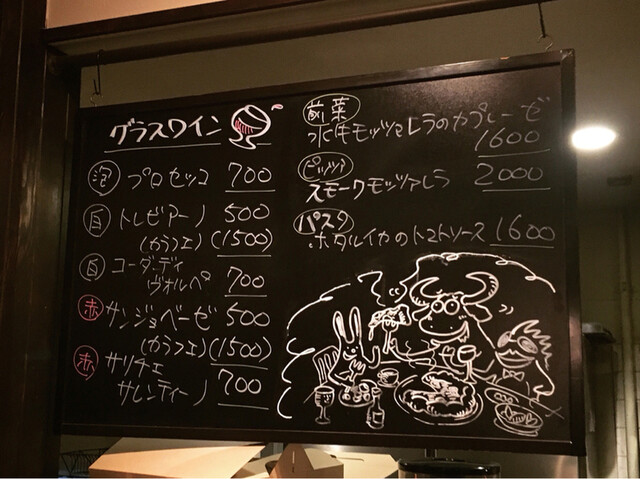 グラスワイン
泡 プロセッコ 700
白 トレビアーノ 500
(カラフェ) (1500)
白 コーダ・ディ
ヴォルペ 700
赤 サンジョベーゼ 500
(カラフェ) (1500)
赤 サリチェ
サレンティーノ 700
前菜
水牛モッツァレラのカプレーゼ
1600
ピッツァ
スモークモッツァレラ 2000
パスタ
ホタルイカのトマトソース 1600